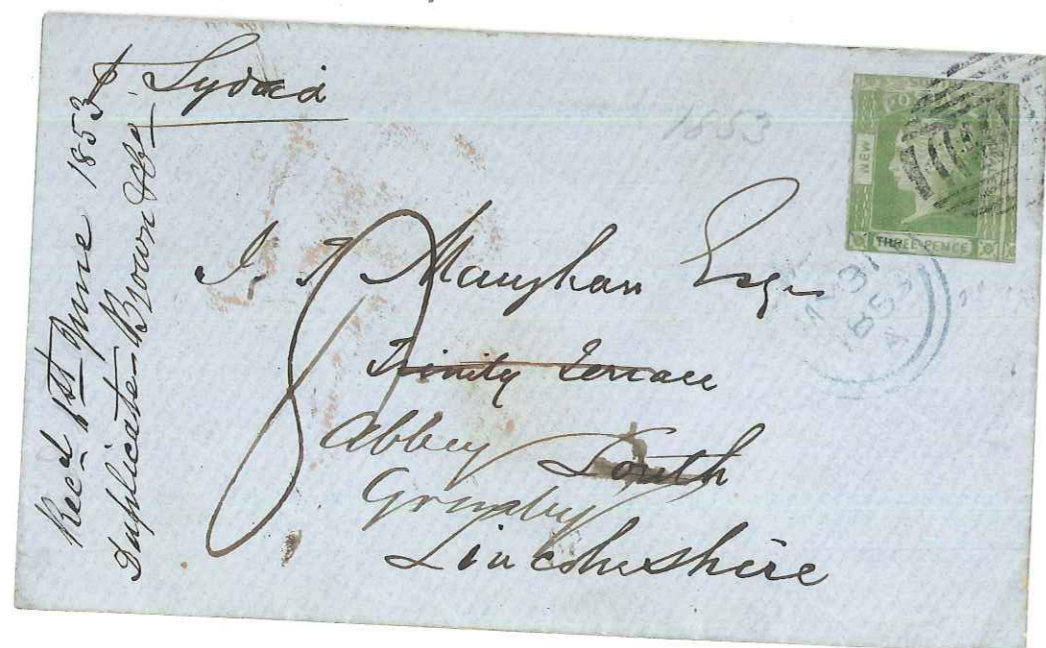 Rec'd 1st June 1853
Duplicate Brown & Co.
p Lydia
1853
NEW
THREE PENCE
J. Maughan Esqr
Trinity Terrace
Abbey South
Grimsby
Lincolnshire
8